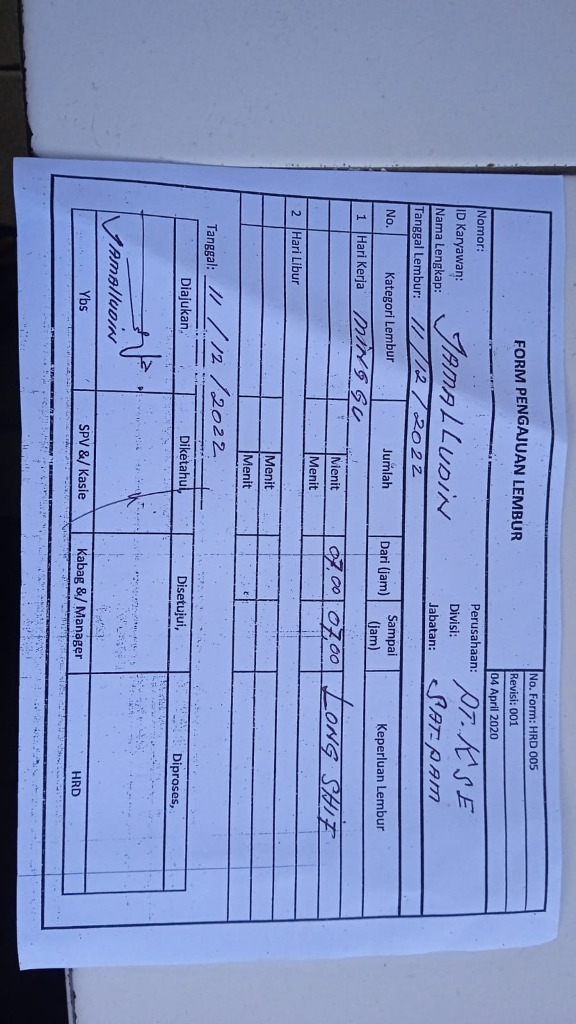 FORM PENGAJUAN LEMBUR
No. Form: HRD 005
Revisi: 001
04 April 2020
Nomor:
Perusahaan: PT. KSE
ID Karyawan:
Divisi:
Nama Lengkap: JAMALLUDIN
Jabatan: SATPAM
Tanggal Lembur: 11/12/2022
No. Kategori Lembur Jumlah Dari (jam) Sampai (jam) Keperluan Lembur
1 Hari Kerja MINGGU
Menit 07.00 07.00 LONG SHIF
Menit
2 Hari Libur
Menit
Menit
Tanggal: 11/12/2022
Diajukan, Diketahui, Disetujui, Diproses,
JAMALLUDIN
Ybs SPV &/ Kasie Kabag &/ Manager HRD